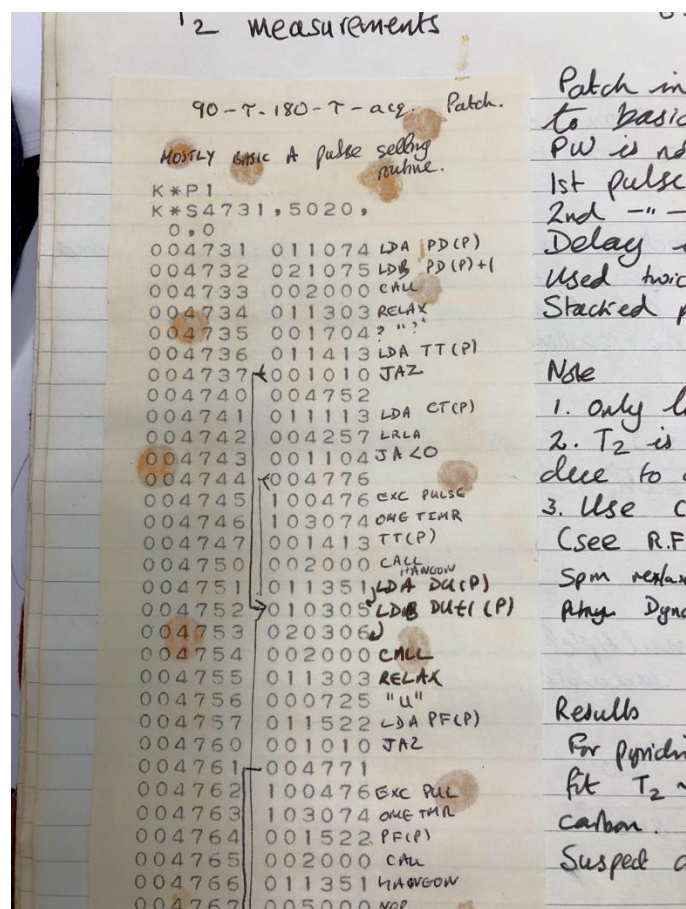 T2 measurements
90-τ-180-τ-acq. Patch.
MOSTLY BASIC A pulse selling
routine.
K*P1
K*S4731,5020,
0,0
004731 011074 LDA PD(P)
004732 021075 LDB PD(P)+1
004733 002000 CALL
004734 011303 RELAX
004735 001704 ? "?"
004736 011413 LDA TT(P)
004737 001010 JAZ
004740 004752
004741 011113 LDA CT(P)
004742 004257 LRLA
004743 001104 JA<0
004744 004776
004745 100476 EXC PULSE
004746 103074 OME TIMR
004747 001413 TT(P)
004750 002000 CALL
004751 011351 HANGON LDA DU(P)
004752 010305 LDB DU+1(P)
004753 020306
004754 002000 CALL
004755 011303 RELAX
004756 000725 "U"
004757 011522 LDA PF(P)
004760 001010 JAZ
004761 004771
004762 100476 EXC PUL
004763 103074 OME TMR
004764 001522 PF(P)
004765 002000 CALL
004766 011351 HANGON
004767 005000 NOP
Patch in
to basic
PW is
1st pulse
2nd -"-
Delay
Used twice
Stacked
Note
1. Only
2. T2 is
due to
3. Use
(see R.F
Spm
Results
For
fit T2 ~
carbon.
Suspect